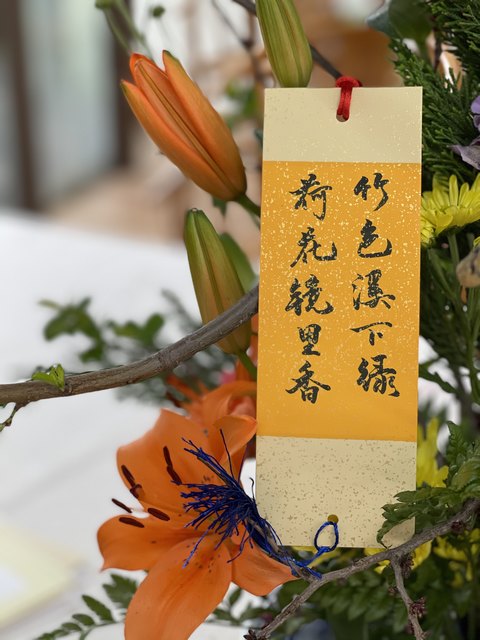 竹色溪下绿
荷花镜里香